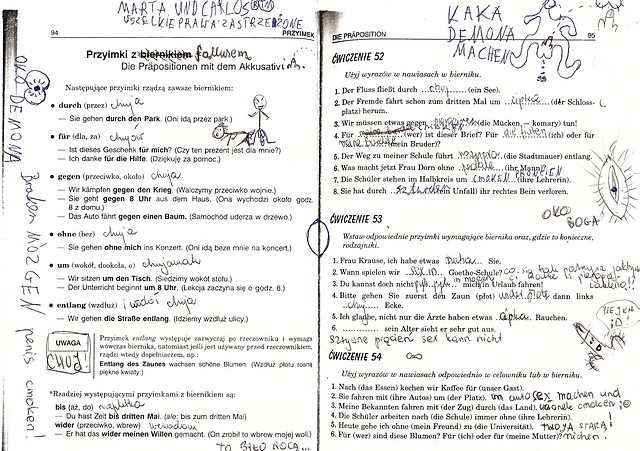 MARTA UND CARLOS
WSZELKIE PRAWA ZASTRZEŻONE
94
PRZYIMEK
Przyimki z biernikiem fallusem
Die Präpositionen mit dem Akkusativ
Następujące przyimki rządzą zawsze biernikiem:
• durch (przez) chuja
— Sie gehen durch den Park. (Oni idą przez park.)
• für (dla, za) chujów
— Ist dieses Geschenk für mich? (Czy ten prezent jest dla mnie?)
— Ich danke für die Hilfe. (Dziękuję za pomoc.)
• gegen (przeciw, około) chuja
— Wir kämpfen gegen den Krieg. (Walczymy przeciwko wojnie.)
— Sie geht gegen 8 Uhr aus dem Haus. (Ona wychodzi około godz.
8 z domu.)
— Das Auto fährt gegen einen Baum. (Samochód uderza w drzewo.)
• ohne (bez) chuja
— Sie gehen ohne mich ins Konzert. (Oni idą beze mnie na koncert.)
• um (wokół, dookoła, o)
— Wir sitzen um den Tisch. (Siedzimy wokół stołu.)
— Der Unterricht beginnt um 8 Uhr. (Lekcja zaczyna się o godz. 8.)
• entlang (wzdłuż) wzdłuż chuja
— Wir gehen die Straße entlang. (Idziemy wzdłuż ulicy.)
UWAGA
CHUJ!
Przyimek entlang występuje zazwyczaj po rzeczowniku i wymaga
wówczas biernika, natomiast jeśli jest używany przed rzeczownikiem,
rządzi wtedy dopełniaczem, np.:
Entlang des Zaunes wachsen schöne Blumen. (Wzdłuż płotu rosną
piękne kwiaty.)
*Rzadziej występującymi przyimkami z biernikiem są:
bis (aż, do)
— Du hast Zeit bis dritten Mai. (ale: bis zum dritten Mai)
wider (przeciwko, wbrew)
— Er hat das wider meinen Willen gemacht. (On zrobił to wbrew mojej woli.)
TO BYŁO NOCĄ...
OKO DEMONA
Braken MÓZGEN
penis cmoken!
KAKA
DEMONA
MACHEN
DIE PRÄPOSITION
95
ĆWICZENIE 52
Użyj wyrazów w nawiasach w bierniku.
1. Der Fluss fließt durch chuj (ein See).
2. Der Fremde fährt schon zum dritten Mal um cipka (der Schloss-
platz) herum.
3. Wir müssen etwas gegen (die Mücken, – komary) tun!
4. Für (wer) ist dieser Brief? Für (ich) oder für
(mein Bruder)?
5. Der Weg zu meiner Schule führt (die Stadtmauer) entlang.
6. Was macht jetzt Frau Dorn ohne (ihr Mann)?
7. Die Schüler stehen im Halbkreis um (ihre Lehrerin).
8. Sie hat durch (ein Unfall) ihr rechtes Bein verloren.
OKO
BOGA
ĆWICZENIE 53
Wstaw odpowiednie przyimki wymagające biernika oraz, gdzie to konieczne,
rodzajniki.
1. Frau Krause, ich habe etwas Sie.
2. Wann spielen wir Goethe-Schule?
3. Du kannst doch nicht mich in Urlaub fahren!
4. Bitte gehen Sie zuerst den Zaun (płot) dann links
Ecke.
5. Ich glaube, nicht nur die Ärzte haben etwas cipka Rauchen.
6. sein Alter sieht er sehr gut aus.
ĆWICZENIE 54
Użyj wyrazów w nawiasach odpowiednio w celowniku lub w bierniku.
1. Nach (das Essen) kochen wir Kaffee für (unser Gast).
2. Sie fahren mit (ihre Autos) um (der Platz).
3. Meine Bekannten fahren mit (der Zug) durch (das Land).
4. Die Schüler arbeiten nach (die Schule) immer ohne (ihre Lehrerin).
5. Heute gehe ich ohne (mein Freund) zu (die Universität). TWOJA STARA!
6. Für (wer) sind diese Blumen? Für (ich) oder für (meine Mutter)?